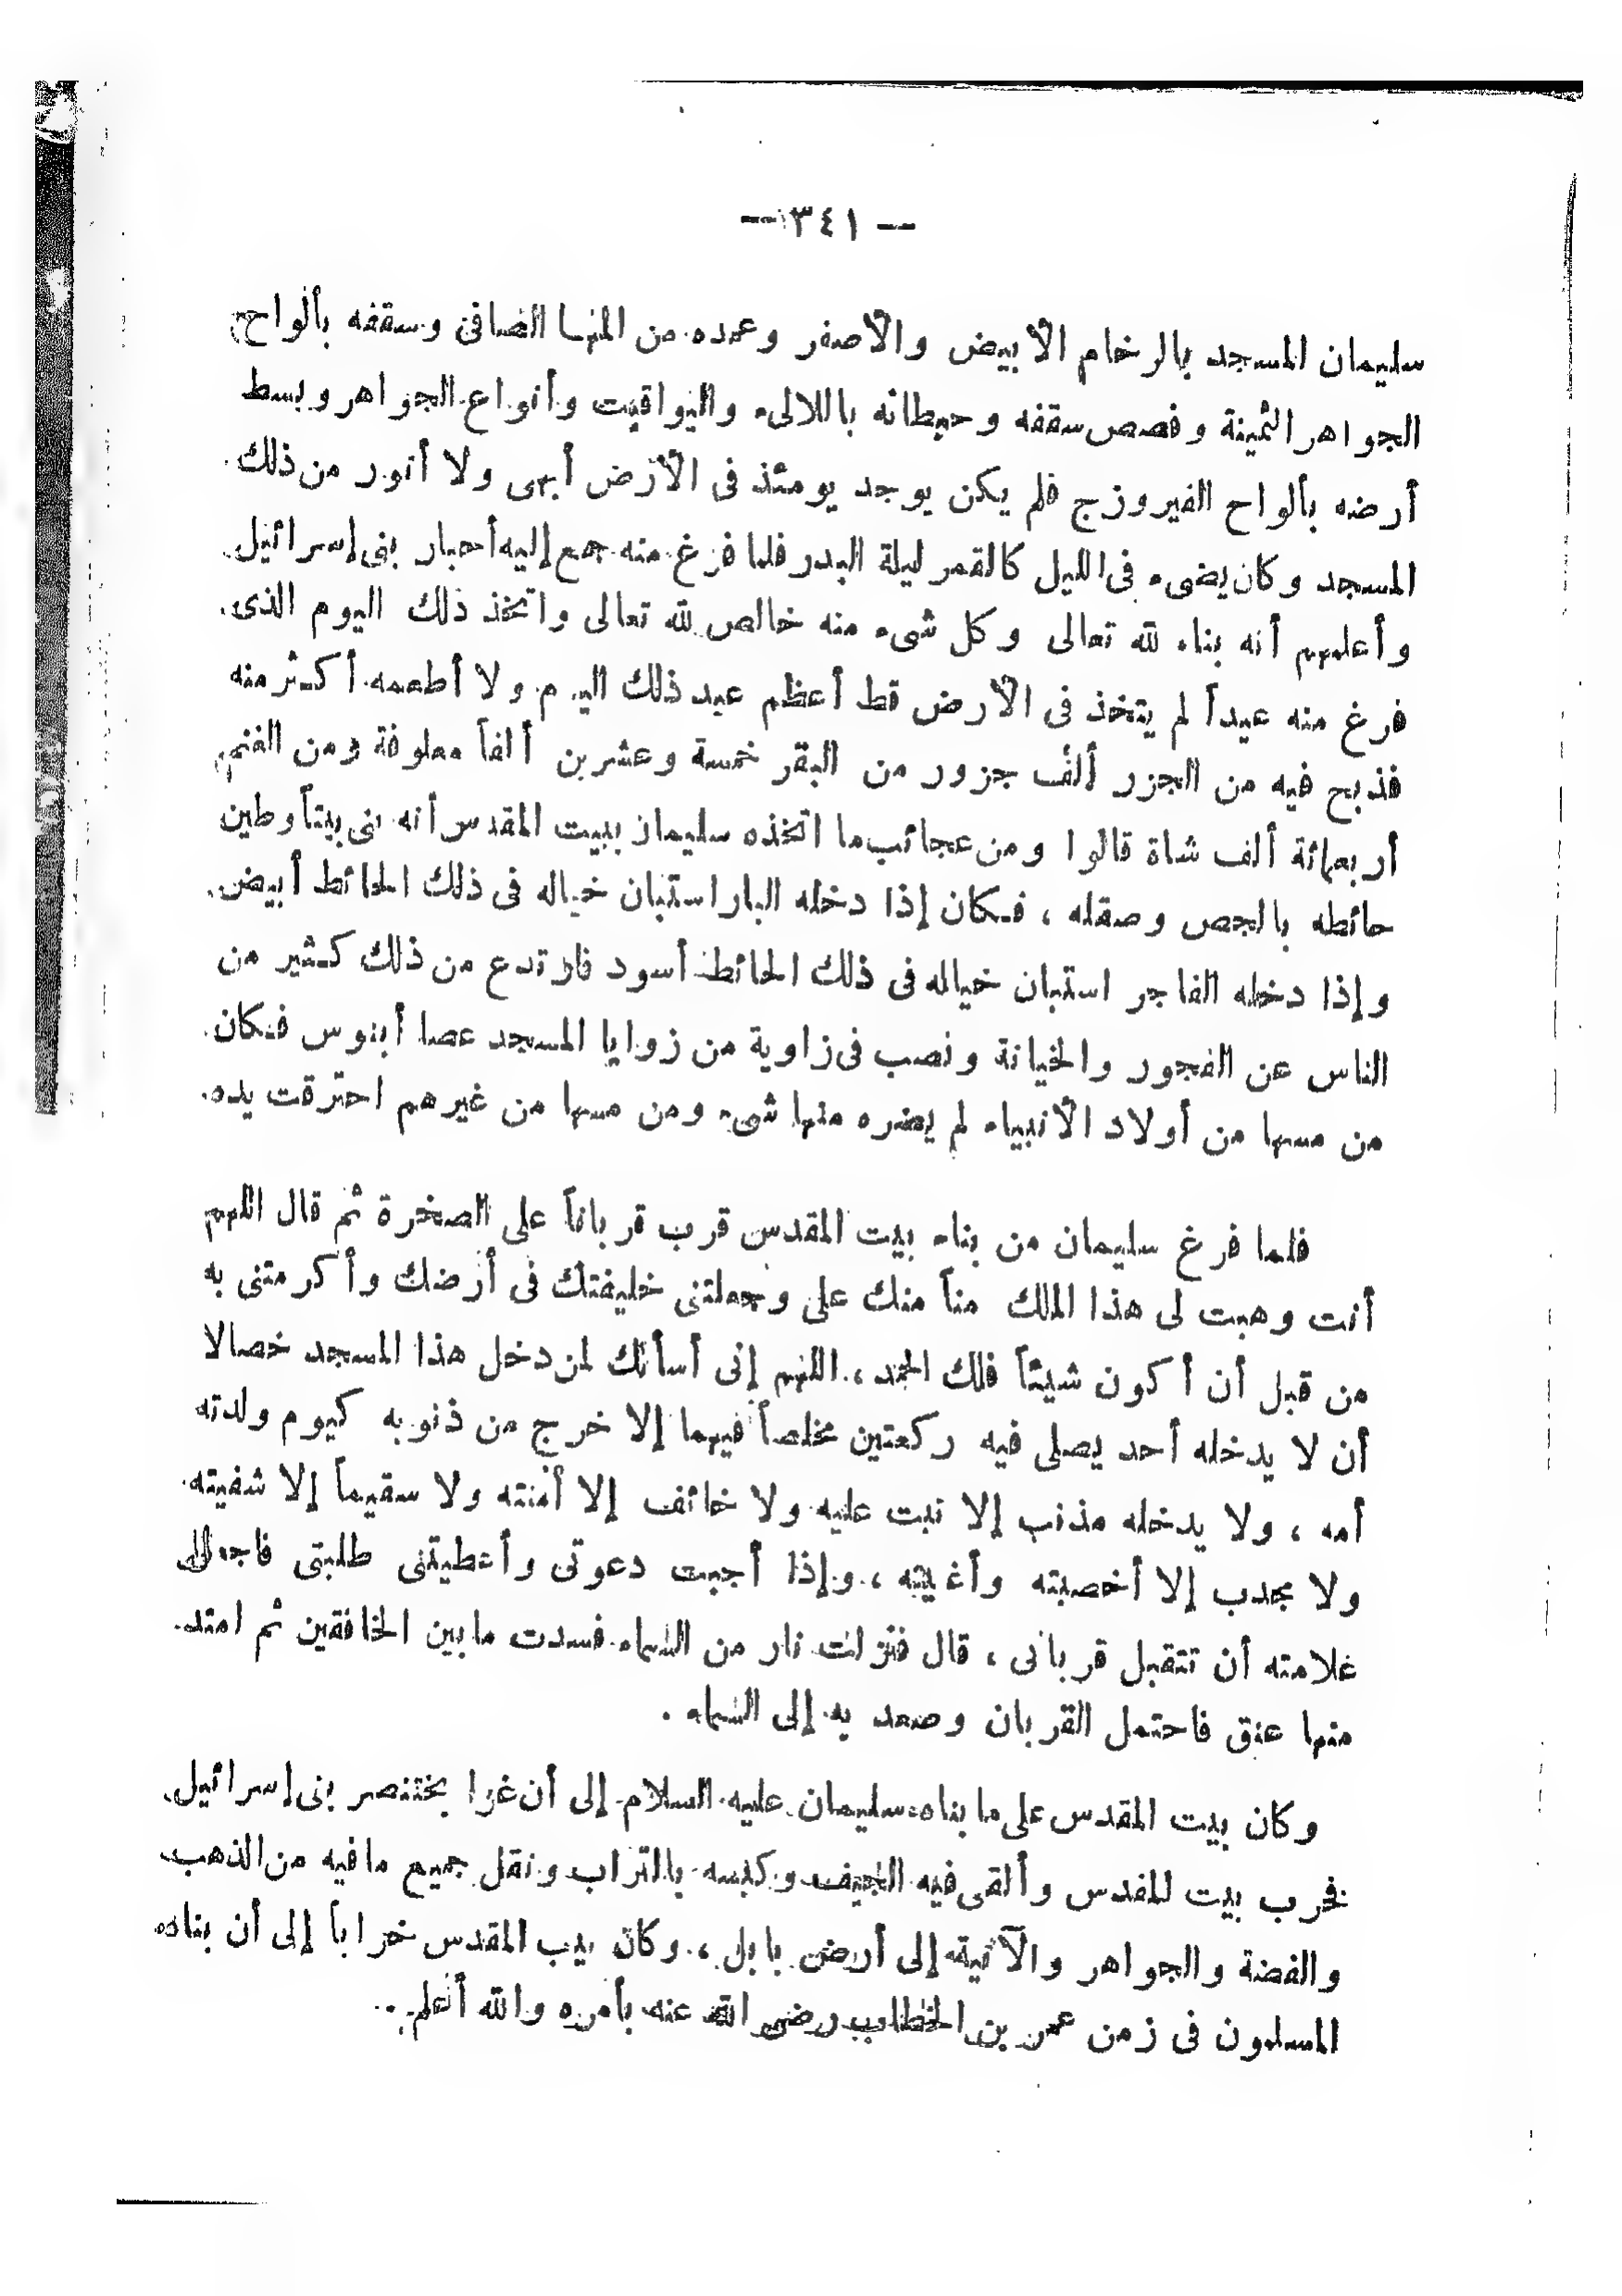 — ٣٤١ —
سليمان المسجد بالرخام الأبيض والأصفر وعمده من المها الصافى وسقفه بألواح
الجواهر الثمينة وفصص سقفه وحيطانه باللالىء واليواقيت وأنواع الجواهر وبسط
أرضه بألواح الفيروزج فلم يكن يوجد يومئذ فى الأرض أبهى ولا أنور من ذلك
المسجد وكان يضىء فى الليل كالقمر ليلة البدر فلما فرغ منه جمع إليه أحبار بنى إسرائيل
وأعلمهم أنه بناه لله تعالى وكل شىء منه خالص لله تعالى واتخذ ذلك اليوم الذى
فرغ منه عيداً لم يتخذ فى الأرض قط أعظم عيد ذلك اليوم ولا أطعمه أكثر منه
فذبح فيه من الجزر ألف جزور من البقر خمسة وعشرين ألفاً معلوفة ومن الغنم
أربعمائة ألف شاة قالوا ومن عجائب ما اتخذه سليمان ببيت المقدس أنه بنى بيتاً وطين
حائطه بالجص وصقله ، فكان إذا دخله البار استبان خياله فى ذلك الحائط أبيض
وإذا دخله الفاجر استبان خياله فى ذلك الحائط أسود فارتدع من ذلك كثير من
الناس عن الفجور والخيانة ونصب فى زاوية من زوايا المسجد عصا أبنوس فكان
من مسها من أولاد الأنبياء لم يضره منها شىء ومن مسها من غيرهم احترقت يده.
فلما فرغ سليمان من بناء بيت المقدس قرب قرباناً على الصخرة ثم قال اللهم
أنت وهبت لى هذا الملك مناً منك على وجعلتنى خليفتك فى أرضك وأكرمتنى به
من قبل أن أكون شيئاً فلك الحمد ، اللهم إنى أسألك لمن دخل هذا المسجد خصالا
أن لا يدخله أحد يصلى فيه ركعتين مخلصاً فيهما إلا خرج من ذنوبه كيوم ولدته
أمه ، ولا يدخله مذنب إلا تبت عليه ولا خائف إلا أمنته ولا سقيماً إلا شفيته
ولا مجدب إلا أخصبته وأغيته ، وإذا أجبت دعوتى وأعطيتنى طلبتى فاجعل
علامته أن تتقبل قربانى ، قال فنزلت نار من السماء فسدت مابين الخافقين ثم امتد
منها عنق فاحتمل القربان وصعد به إلى السماء .
وكان بيت المقدس على ما بناه سليمان عليه السلام إلى أن غزا بختنصر بنى إسرائيل
فخرب بيت المقدس وألقى فيه الجيف وكبسه بالتراب ونقل جميع مافيه من الذهب
والفضة والجواهر والآنية إلى أرض بابل ، وكان بيت المقدس خراباً إلى أن بناه
المسلمون فى زمن عمر بن الخطاب رضى الله عنه بأمره والله أعلم .